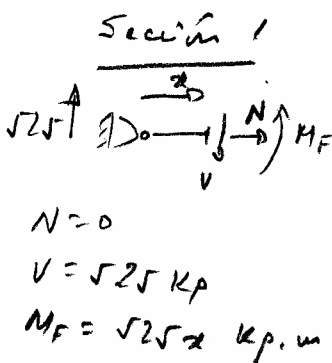 Sección 1
x
525
N
M_F
V
N = 0
V = 525 Kp
M_F = 525x Kp.m